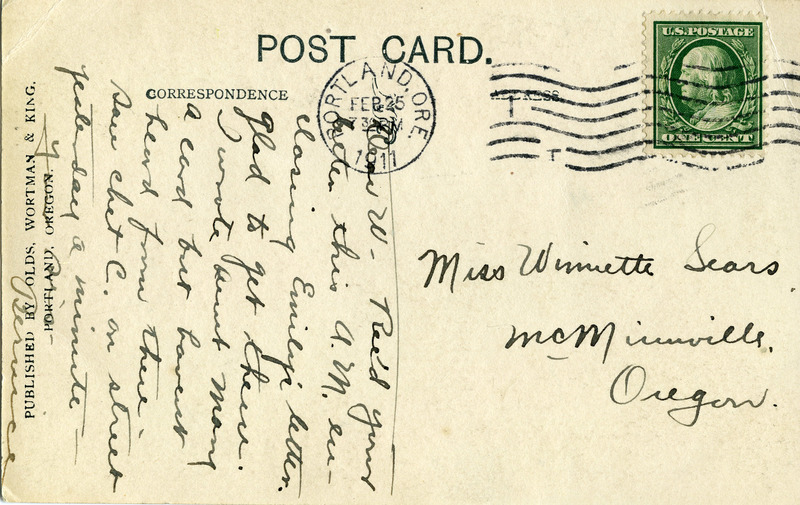 POST CARD.
CORRESPONDENCE
PORTLAND, ORE.
FEB 25
1911
U.S. POSTAGE
ONE CENT
T
Dear W- Rec'd your
letter this A.M. en-
closing Emily's letter.
Glad to get them.
I wrote Aunt Mary
a card but havent
heard from there.
Saw Chet C. on street
yesterday a minute
Bernice
Miss Winnette Sears.
McMinnville,
Oregon.
PUBLISHED BY OLDS, WORTMAN & KING,
PORTLAND, OREGON.